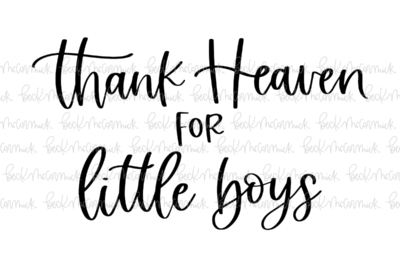 thank Heaven
FOR
little boys